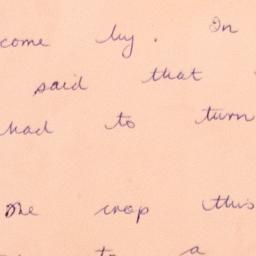 come by. On
said that
had to turn
The crop this
to a